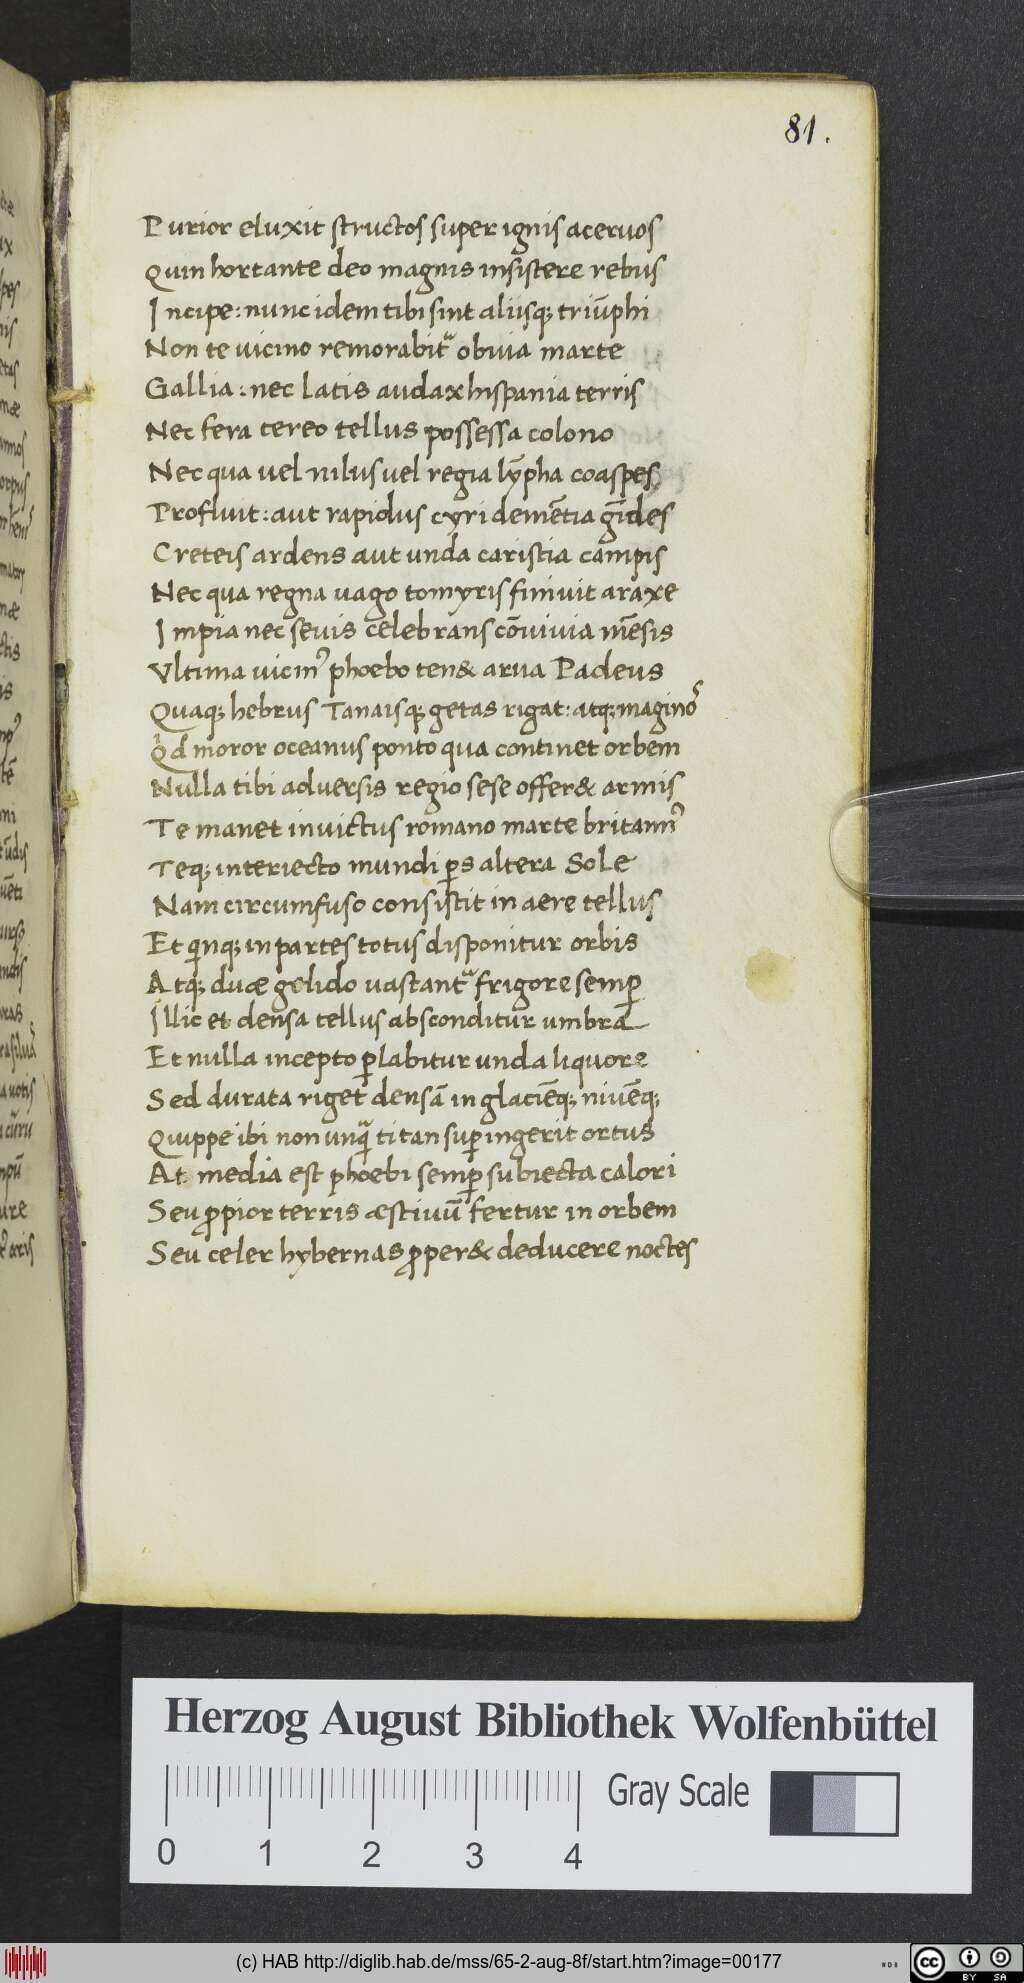 81.
Purior eluxit structos super ignis aceruos
Quin hortante deo magnis insistere rebus
Incipe: nunc idem tibi sint aliisq; triūphi
Non te uicino remorabit᷑ obuia marte
Gallia: nec latis audax hispania terris
Nec fera tereo tellus possessa colono
Nec qua uel nilus uel regia lȳpha coaspes
Profluit: aut rapidus cyri demētia gīdes
Creteis ardens aut unda caristia campis
Nec qua regna uago tomyris finiuit araxe
Impia nec seuis celebrans cōuiuia mēsis
Vltima uicinꝰ phoebo ten& arua Padeus
Quaq; hebrus Tanaisq; getas rigat: atq; maginoꝰ
Qd moror oceanus ponto qua continet orbem
Nulla tibi aduersis regio sese offer& armis
Te manet inuictus romano marte britannꝰ
Teq; interiecto mundi ꝑs altera Sole
Nam circumfuso consistit in aere tellus
Et qinq; in partes totus disponitur orbis
Atq; duæ gelido uastant᷑ frigore semꝑ
Illic et densa tellus absconditur umbra
Et nulla incepto ꝑlabitur unda liquore
Sed durata riget densā in glaciēq; niuēq;
Quippe ibi non unqᷓ titan suꝑingerit ortus
At media est phoebi semꝑ subiecta calori
Seu ꝓpior terris æstiuū fertur in orbem
Seu celer hybernas ꝓper& deducere noctes
Herzog August Bibliothek Wolfenbüttel
Gray Scale
0 1 2 3 4
(c) HAB http://diglib.hab.de/mss/65-2-aug-8f/start.htm?image=00177
cc BY SA